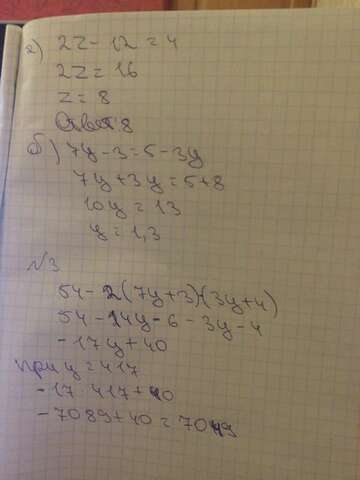 а) 2z - 12 = 4
2z = 16
z = 8
Ответ 8
б) 7y - 3 = 5 - 3y
7y + 3y = 5 + 8
10y = 13
y = 1,3
№3
54 - 2(7y + 3)(3y + 4)
54 - 14y - 6 - 3y - 4
- 17y + 40
при y = 417
- 17 · 417 + 40
- 7089 + 40 = 7049